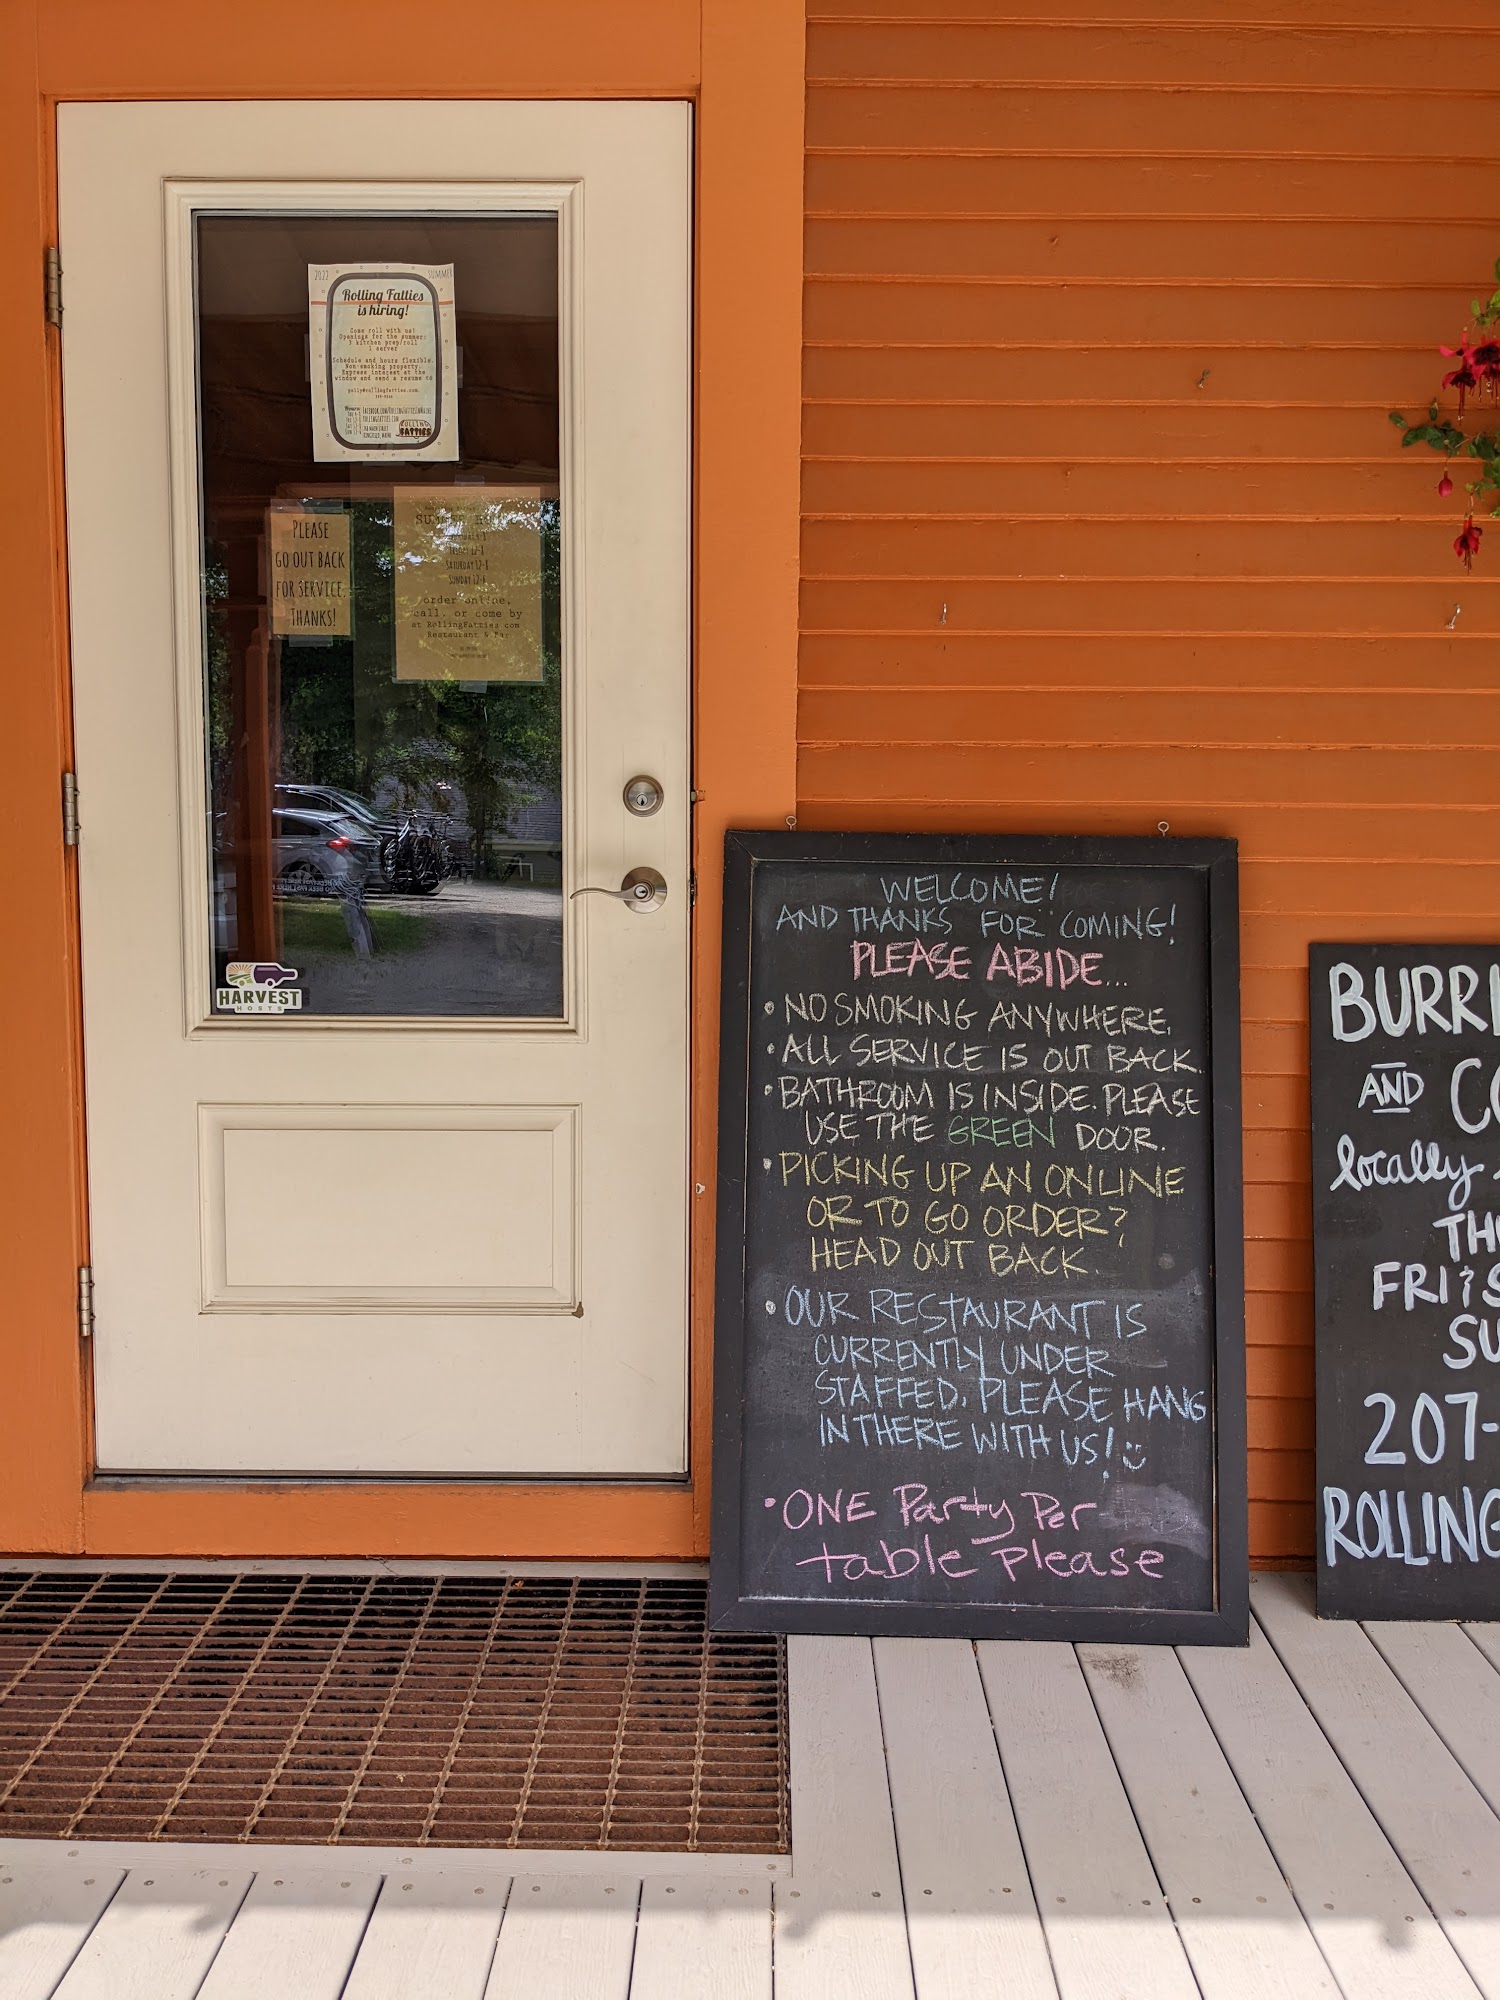 2022 SUMMER
Rolling Fatties
is hiring!
Come roll with us!
Openings for the summer:
3 kitchen prep/roll
1 server
Schedule and hours flexible.
Non-smoking property.
Express interest at the
window and send a resume to
polly@rollingfatties.com
ROLLING
FATTIES
PLEASE
GO OUT BACK
FOR SERVICE.
THANKS!
SATURDAY 12-8
SUNDAY 12-6
order online,
call, or come by
at RollingFatties.com
Restaurant & Bar
HARVEST
HOSTS
WELCOME!
AND THANKS FOR COMING!
PLEASE ABIDE...
• NO SMOKING ANYWHERE.
• ALL SERVICE IS OUT BACK.
• BATHROOM IS INSIDE. PLEASE
USE THE GREEN DOOR.
• PICKING UP AN ONLINE
OR TO GO ORDER?
HEAD OUT BACK.
• OUR RESTAURANT IS
CURRENTLY UNDER
STAFFED. PLEASE HANG
IN THERE WITH US!
• ONE Party Per
table please
BURRI
AND CO
locally
TH
FRI & S
SU
207-
ROLLING